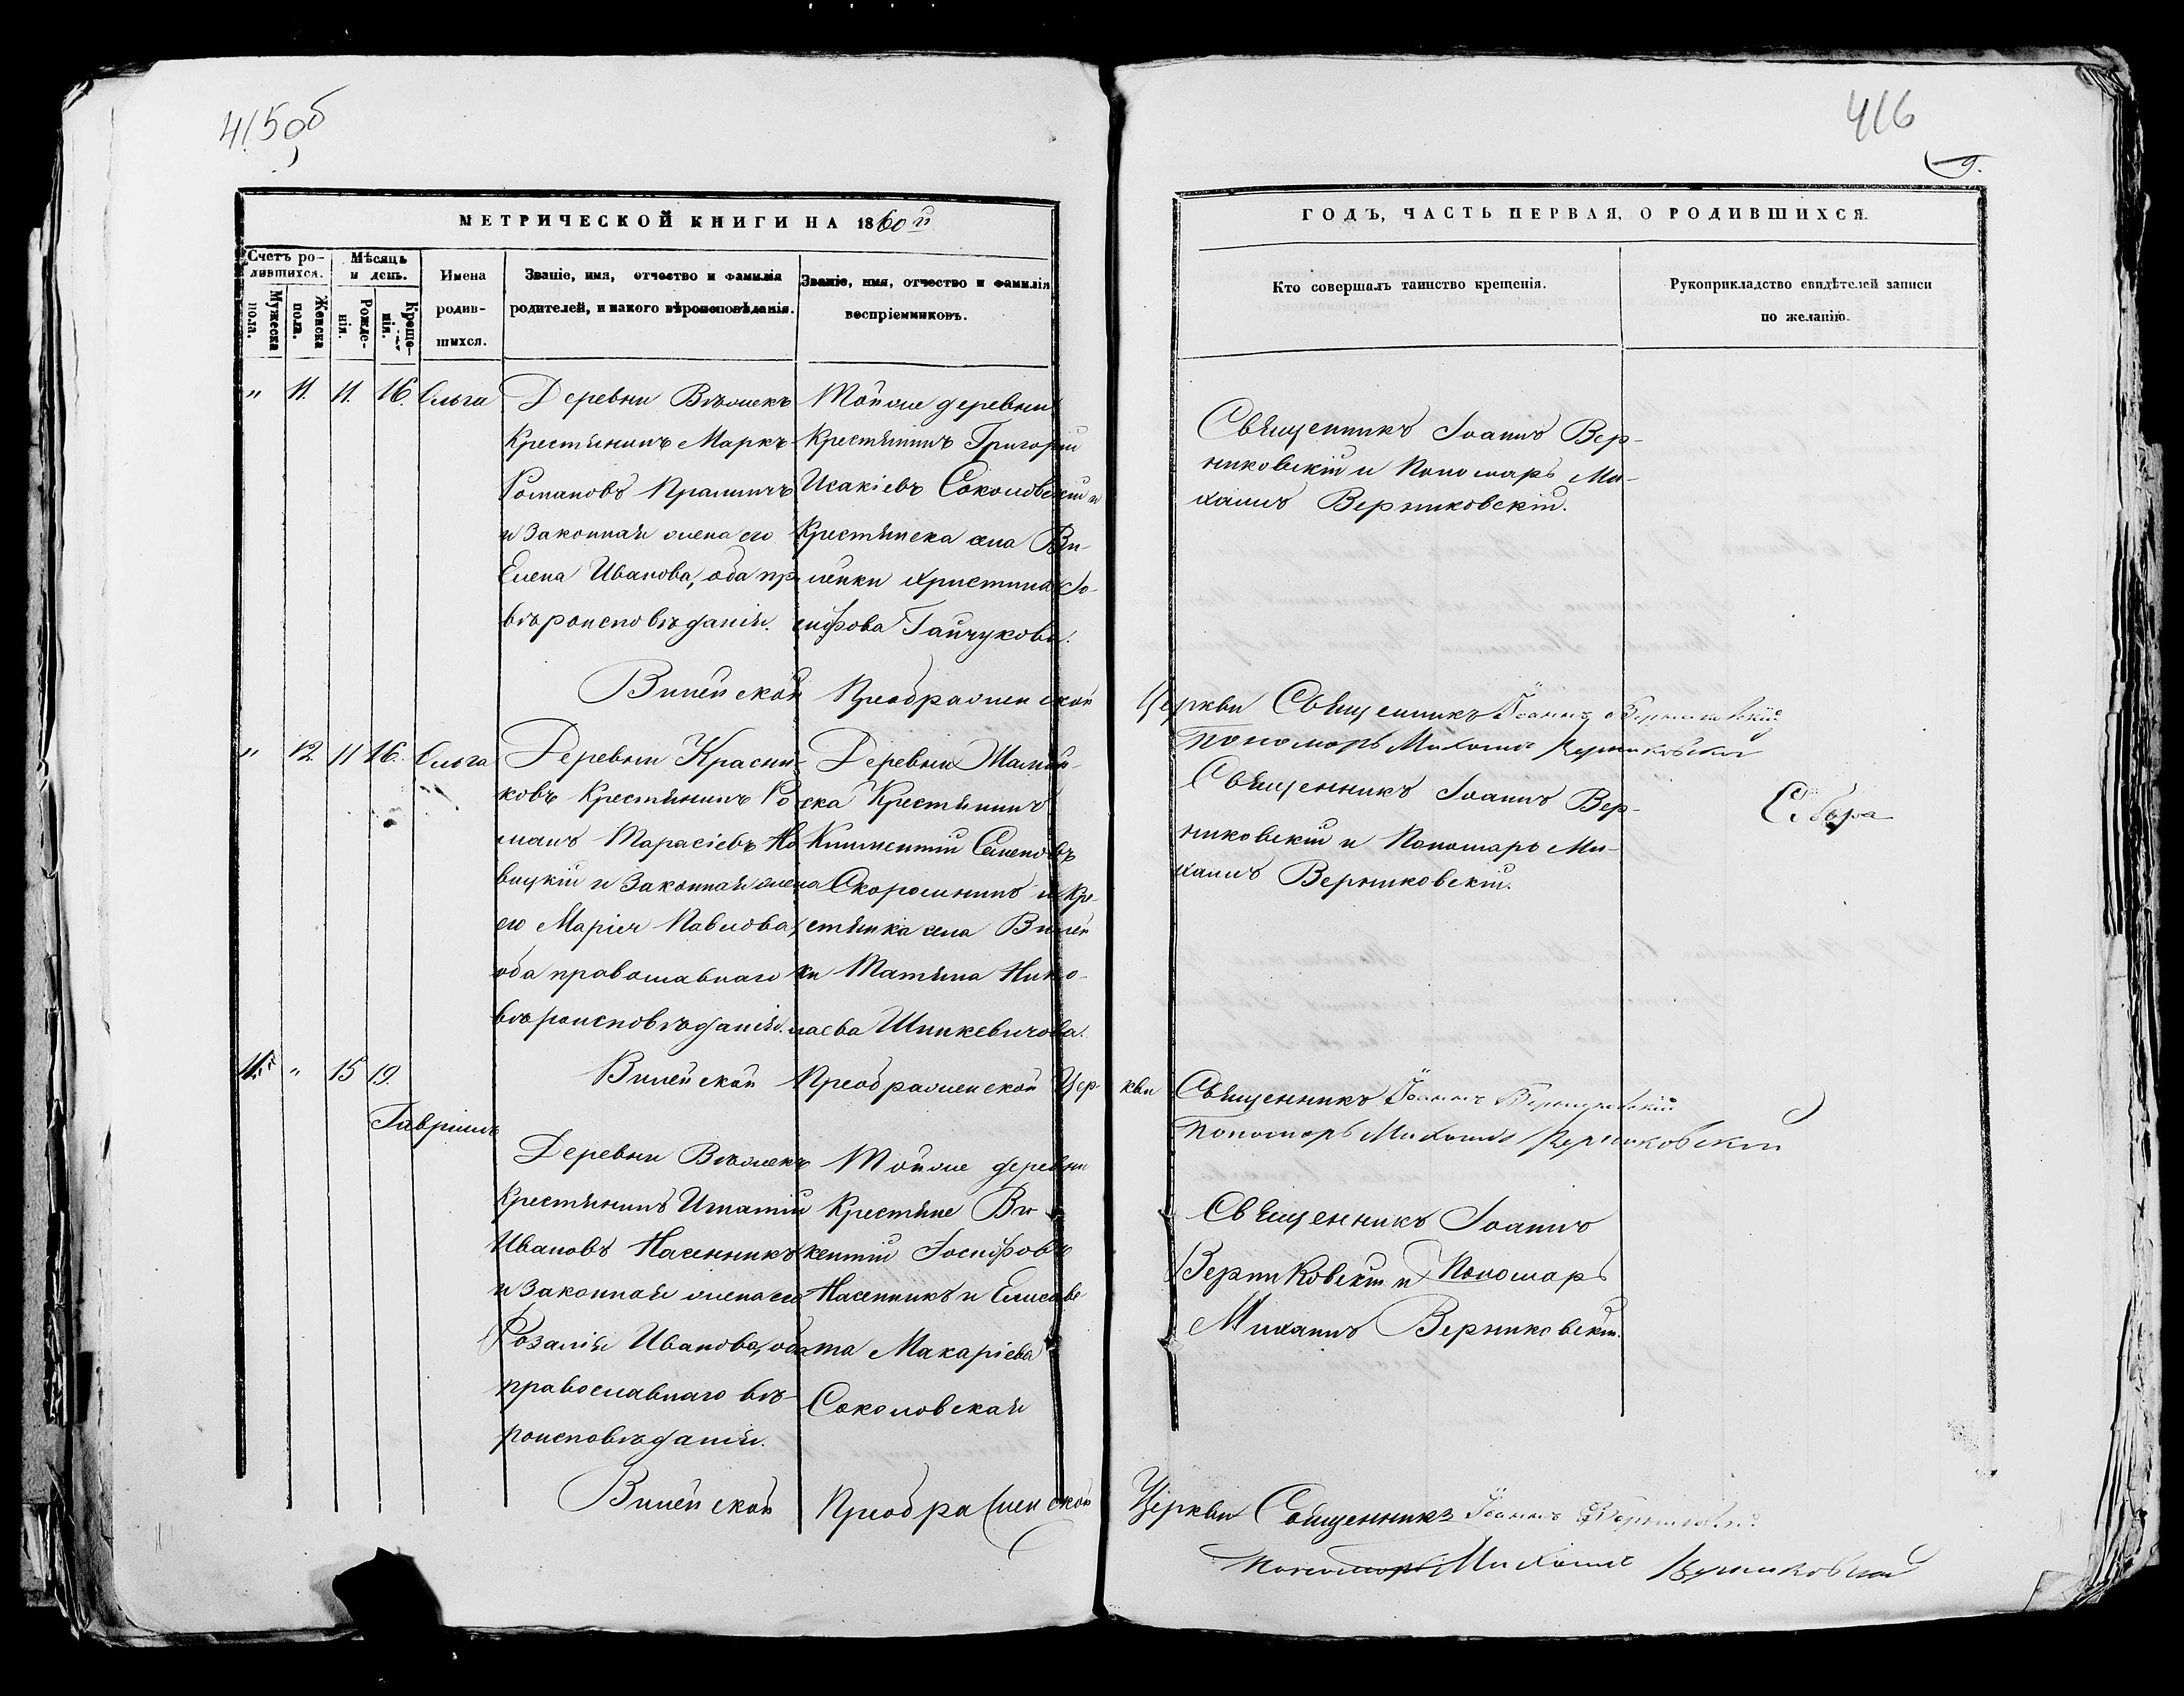 415 об
416
9.
МЕТРИЧЕСКОЙ КНИГИ НА 1860й
ГОДЪ, ЧАСТЬ ПЕРВАЯ, О РОДИВШИХСЯ.
Счетъ ро-
дившихся.
Мужеска
пола.
Женска
пола.
Мѣсяцъ
и день.
Рожде-
нія.
Креще-
нія.
Имена
родив-
шихся.
Званіе, имя, отчество и фамилія
родителей, и какого вѣроисповѣданія.
Званіе, имя, отчество и фамилія
воспріемниковъ.
Кто совершалъ таинство крещенія.
Рукоприкладство свидѣтелей записи
по желанію.
" 11. 11. 16. Ольга
Деревни
Крестянинъ Маркъ
Романовъ
и Законная жена его
Елена Иванова, оба пр.
вѣроисповѣданія.
Тойже деревни
Крестянинъ Григорій
Исакіевъ Соколовскій и
Крестянска села Ви-
лейки Христина Іо-
сифова Гайчукова.
Священникъ Іоаннъ Вер-
никовскій и Пономарь Ми-
хаилъ Верниковскій.
Вилейской Преображенской Церкви Священникъ Іоаннъ Верниковскій
Пономарь Михаилъ Верниковскій
" 12. 11 16. Ольга
Деревни Красни-
ковъ Крестянинъ Ро
манъ Тарасіевъ Но
вицкій и Законная жена
его Марія Павлова,
оба православнаго
вѣроисповѣданія.
Деревни
ска Крестянинъ
Климентій Семеновъ
и Кре-
стянка села Вилей
ки Татяна Нико-
лаева Шинкевичова.
Священникъ Іоаннъ Вер-
никовскій и Пономарь Ми-
хаилъ Верниковскій.
Вилейской Преображенской Цер кви Священникъ Іоаннъ Верниковскій
Пономарь Михаилъ Верниковскій
" 15 19.
Гавріилъ
Деревни
Крестянинъ Игнатій
Ивановъ Насенникъ
и Законная жена его
Розалія Иванова, оба
православнаго вѣ-
роисповѣданія.
Тойже деревни
Крестяне Ви
кентій Іосифовъ
Насенникъ и Елисаве
та Макаріева
Соколовская
Священникъ Іоаннъ
Верниковскій и Пономарь
Михаилъ Верниковскій.
Вилейской Преображенской Церкви Священникъ Іоаннъ Верниковскій
Пономарь Михаилъ Верниковскій